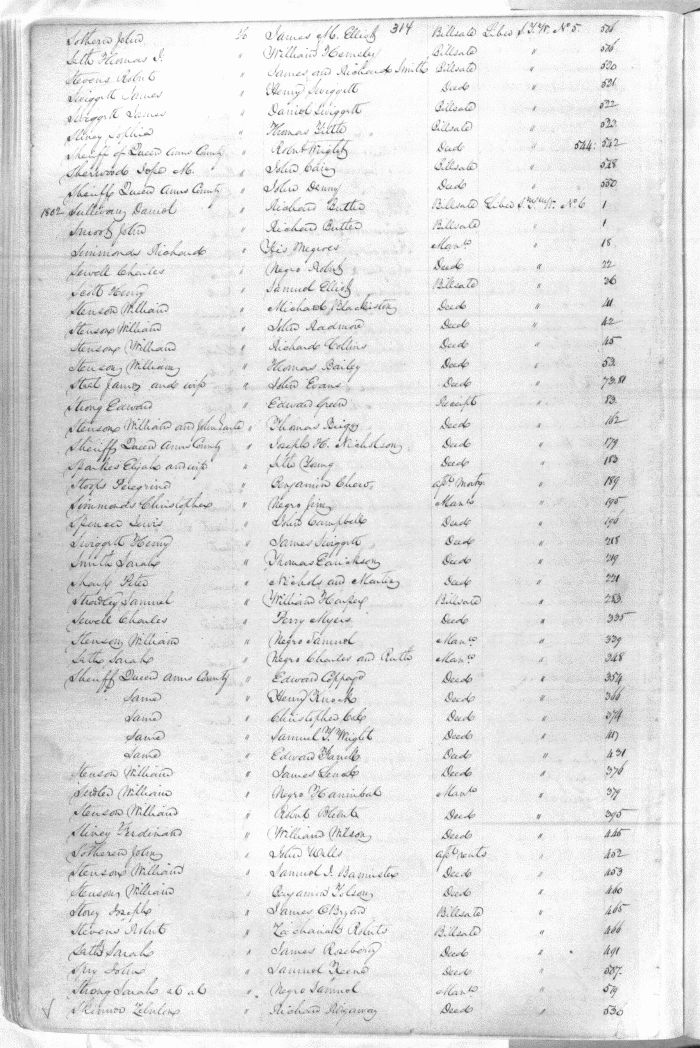 314
Sothern John to James M. Elliott Billsale Liber S.T.W. No 5. 526
Seth Thomas J. " William Hemsley Billsale " 526
Stevens Robert " James and Richard Smith Billsale " 520
Swiggett James " Henry Swiggett Deed " 521
Swiggett James " Daniel Swiggett Billsale " 522
Sophia " Thomas Billsale " 523
Sheriff of Queen Anns County " Robert Wright Deed " 544: 542
Sherwood M. " John Billsale " 528
Sheriff Queen Anns County " John Denny Deed " 550
1802 Sullivan Daniel " Richard Butler Billsale Liber S.T.W. No 6 1
Smoot John " Richard Butler Billsale " 1
Simmonds Richard " His Negroes Mano " 18
Sewell Charles " Negro Robert Deed " 22
Scott Henry " Samuel Elliott Billsale " 36
Stenson William " Michael Blackiston Deed " 41
Stenson William " John Deed " 42
Stenson William " Richard Collins Deed " 45
Stenson William " Thomas Bailey Deed " 53
James and wife " John Evans Deed " 73.81
Strong Edward " Edward Green Receipt " 83
Stenson William and John " Thomas Briggs Deed " 162
Sheriff Queen Anns County " Joseph H. Nicholson Deed " 179
Sparkes Elijah and wife " Seth Young Deed " 183
Stoops Peregrine " Benjamin Chew " 189
Simmonds Christopher " Negro Mano " 195
Spencer Lewis " John Campbell Deed " 196
Swiggett Henry " James Swiggett Deed " 218
Smith Sarah " Thomas Deed " 219
Peter " Nichols and Deed " 221
Samuel " William Harper Billsale " 283
Sewell Charles " Perry Myers Deed " 335
Stenson William " Negro Samuel Mano " 339
Seth Sarah " Negro Charles and Ruth Mano " 348
Sheriff Queen Anns County " Edward Coppage Deed " 354
Same " Henry Knock Deed " 366
Same " Christopher Cox Deed " 374
Same " Samuel T. Wright Deed " 417
Same " Edward Deed " 431
Stenson William " James Deed " 376
William " Negro Hannibal Mano " 379
Stenson William " Robert Blunt Deed " 395
Ferdinand " William Wilson Deed " 445
Sotheren John " John " 452
Stenson William " Samuel J. Deed " 453
Stenson William " Benjamin Tolson Deed " 460
Story Joseph " James O'Bryan Billsale " 465
Stevens Robert " Zachariah Roberts Billsale " 466
Seth Sarah " James Roseberry Deed " 491
Spry John " Samuel Keene Deed " 507
Strong Sarah et al " Negro Samuel Mano " 519
Skinner Zebulon " Richard Ridgaway Deed " 536